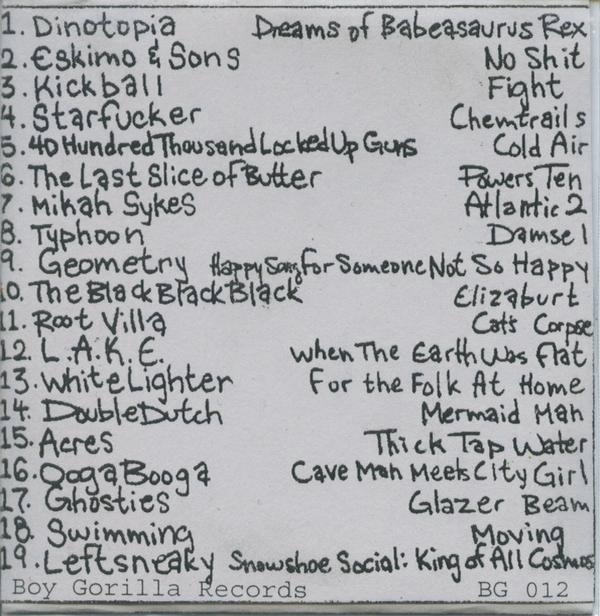 1. Dinotopia Dreams of Babeasaurus Rex
2. Eskimo & Sons No Shit
3. Kickball Fight
4. Starfucker Chemtrails
5. 40 Hundred Thousand Locked Up Guns Cold Air
6. The Last Slice of Butter Powers Ten
7. Mikah Sykes Atlantic 2
8. Typhoon Damsel
9. Geometry Happy Song For Someone Not So Happy
10. The Black Black Black Elizaburt
11. Root Villa Cat's Corpse
12. L.A.K.E. When The Earth Was Flat
13. White Lighter For the Folk At Home
14. Double Dutch Mermaid Man
15. Acres Thick Tap Water
16. Ooga Booga Cave Man Meets City Girl
17. Ghosties Glazer Beam
18. Swimming Moving
19. Leftsneaky Snowshoe Social: King of All Cosmos
Boy Gorilla Records BG 012